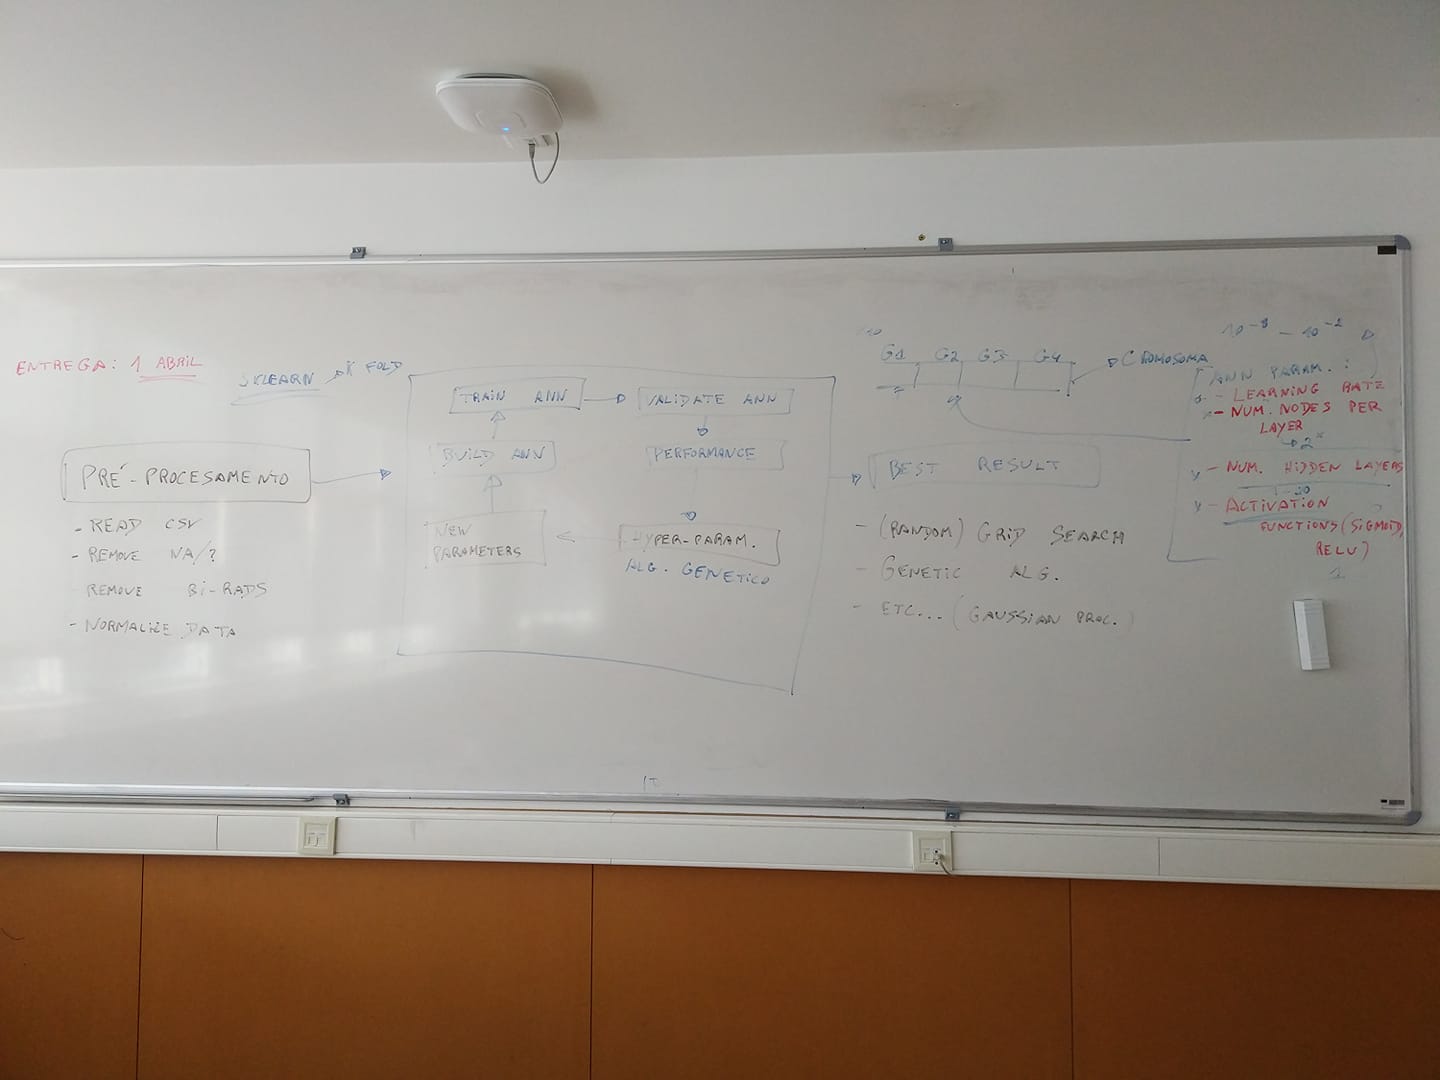 ENTREGA: 1 ABRIL
SKLEARN
K FOLD
PRÉ-PROCESAMENTO
- READ CSV
- REMOVE NA/?
REMOVE BI-RADS
- NORMALIZE DATA
TRAIN ANN
VALIDATE ANN
BUILD ANN
PERFORMANCE
NEW
PARAMETERS
HYPER-PARAM.
ALG. GENETICO
G1 G2 G3 G4
CROMOSOMA
BEST RESULT
- (RANDOM) GRID SEARCH
- GENETIC ALG.
- ETC... (GAUSSIAN PROC.)
ANN PARAM. :
- LEARNING RATE
- NUM. NODES PER
LAYER
- NUM. HIDDEN LAYERS
- ACTIVATION
FUNCTIONS (SIGMOID,
RELU)